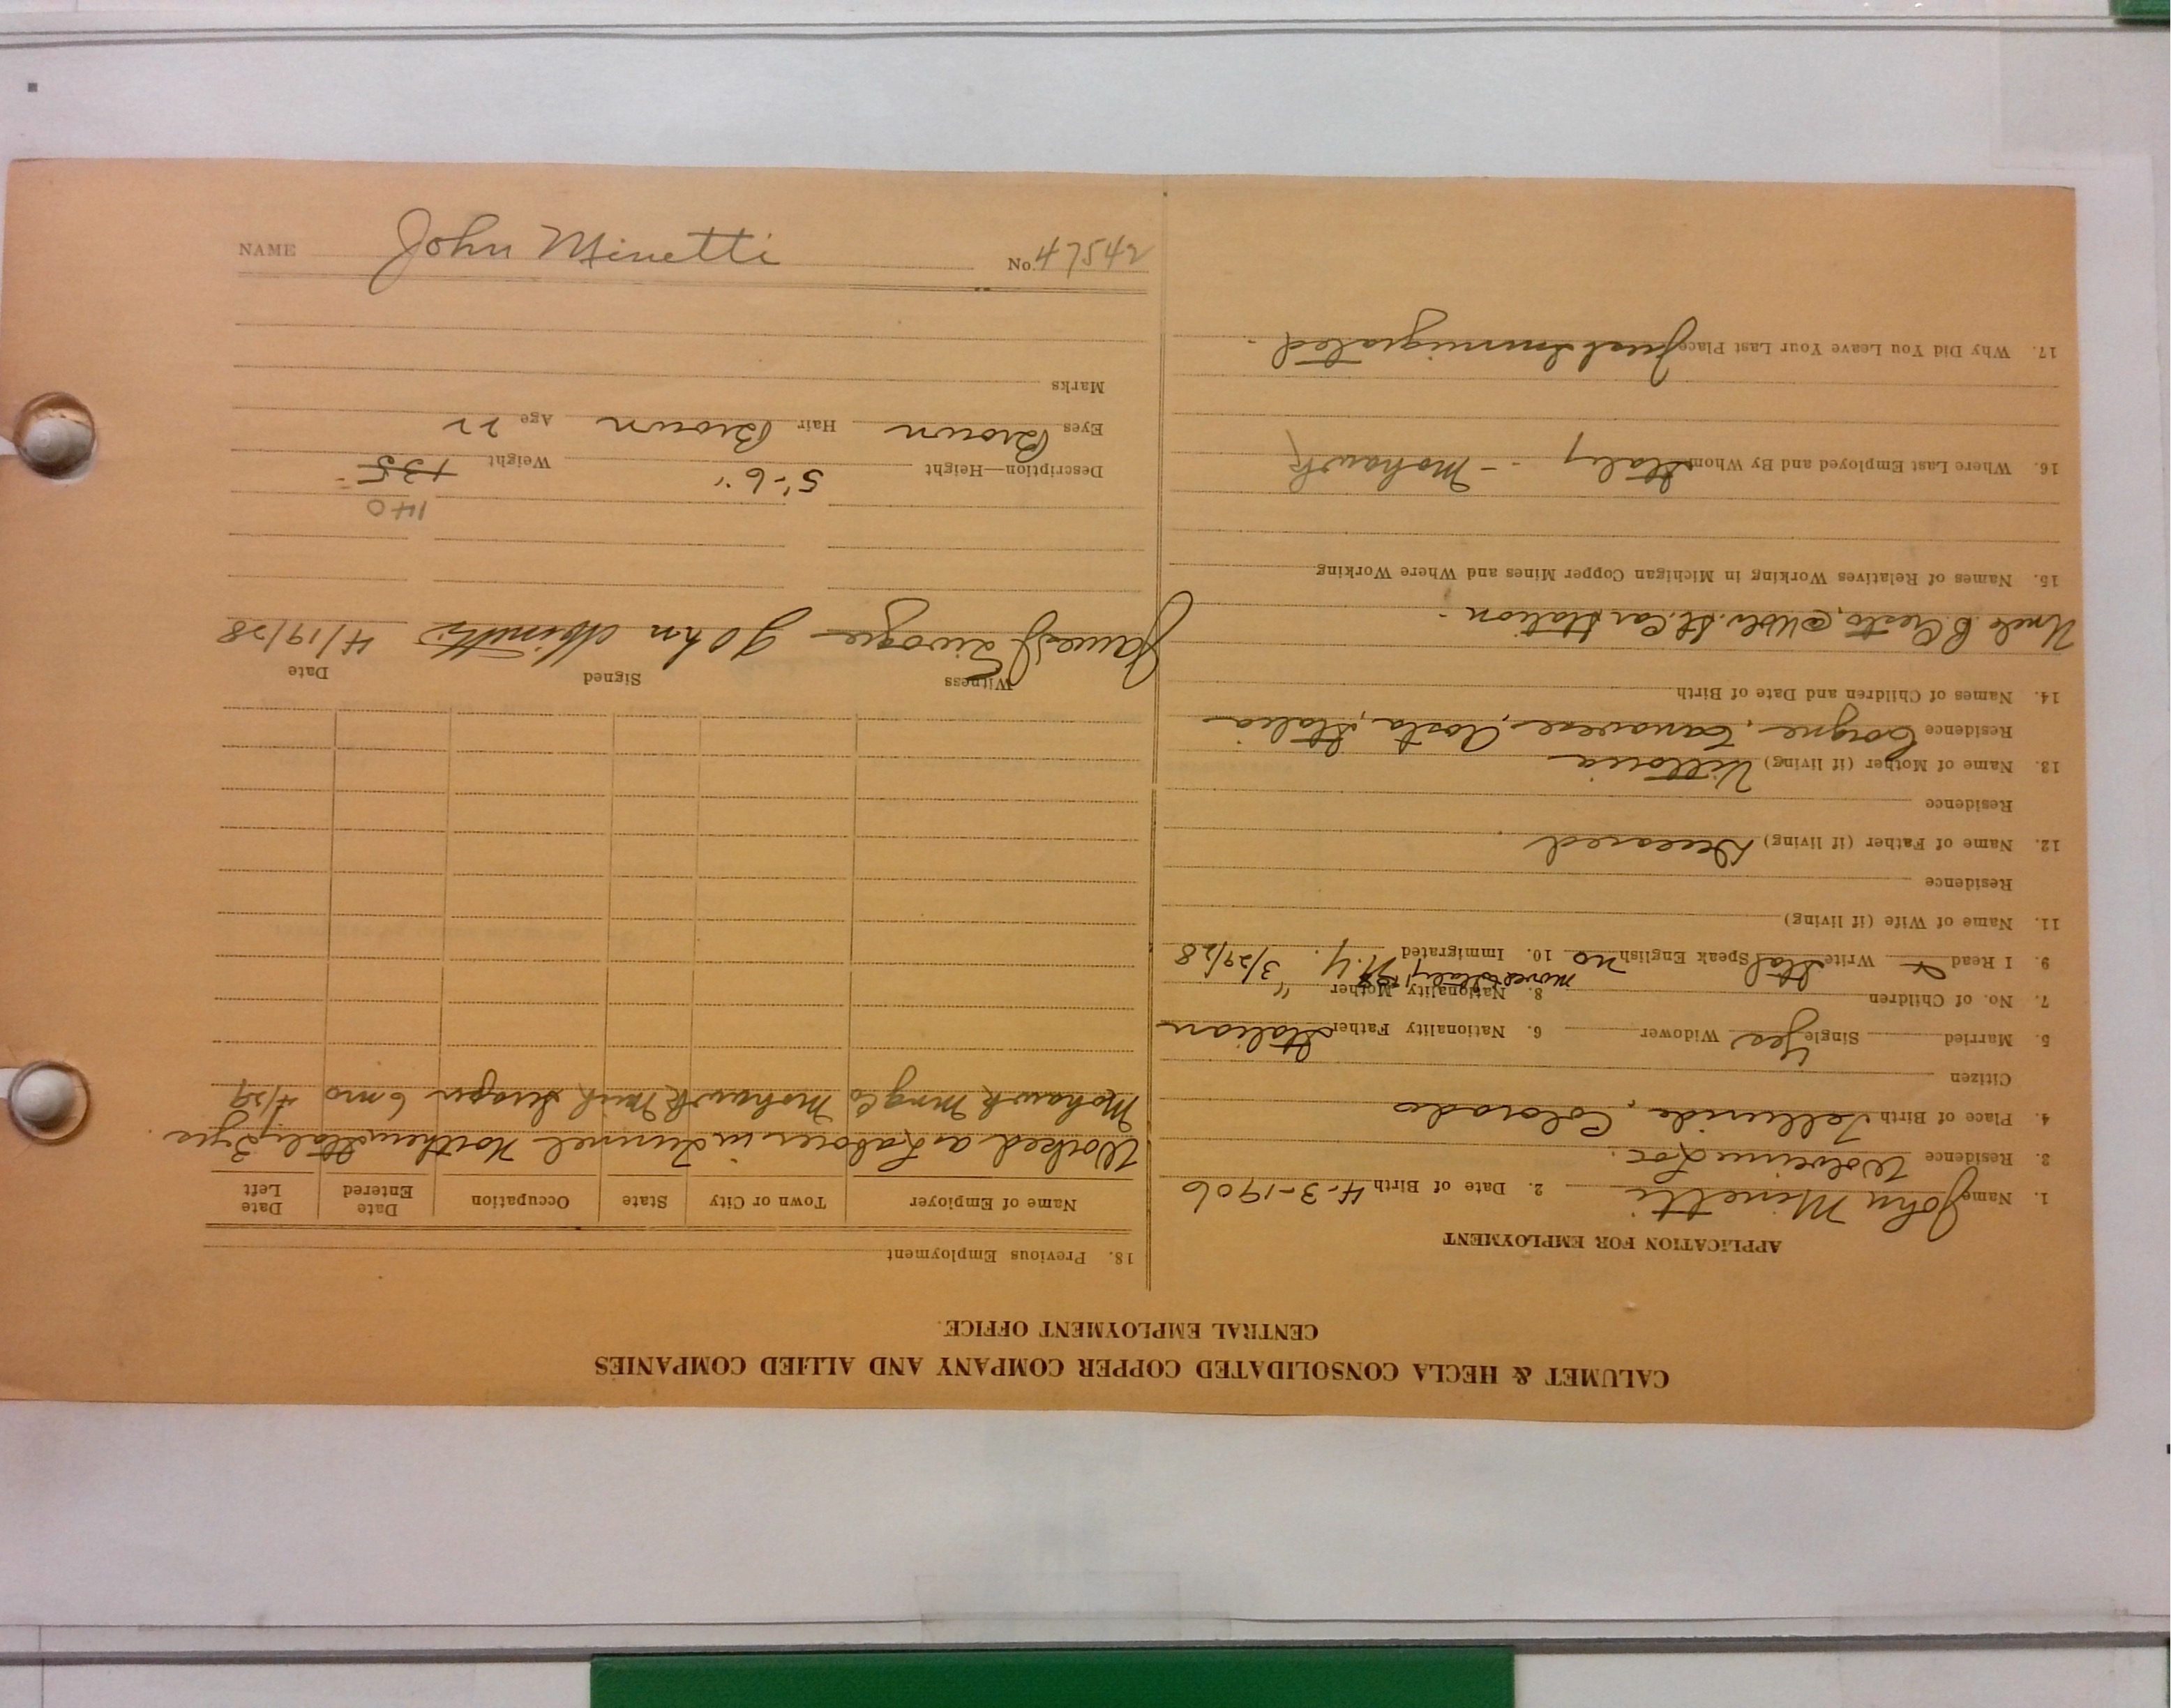 NAME John Minetti No. 47542
CALUMET & HECLA CONSOLIDATED COPPER COMPANY AND ALLIED COMPANIES
CENTRAL EMPLOYMENT OFFICE.
APPLICATION FOR EMPLOYMENT
1. Name John Minetti 2. Date of Birth 4-3-1906
3. Residence Wolverine Loc.
4. Place of Birth Telluride, Colorado
Citizen
5. Married Single Yes Widower 6. Nationality Father Italian
7. No. of Children 8. Nationality Mother "
moved to Italy
9. I Read & Write Ital Speak English no 10. Immigrated N.Y. 3/29/28
11. Name of Wife (if living)
Residence
12. Name of Father (if living) Deceased
Residence
13. Name of Mother (if living) Vittoria
Residence Corgne, Canavese, Aosta, Italia
14. Names of Children and Date of Birth
Uncle B. Aosta, @ Wolv. St. Car Station -
15. Names of Relatives Working in Michigan Copper Mines and Where Working
16. Where Last Employed and By Whom Italy - Mohawk
17. Why Did You Leave Your Last Place Just Immigrated -
18. Previous Employment
Name of Employer Town or City State Occupation Date Entered Date Left
Worked as Laborer in Tunnel Northern Italy 2 yrs.
Mohawk Mng Co Mohawk Mich 6 mo 4/29
Witness Signed Date
John Minetti 4/19/28
140
Description—Height 5'-6" Weight 135
Eyes Brown Hair Brown Age 22
Marks